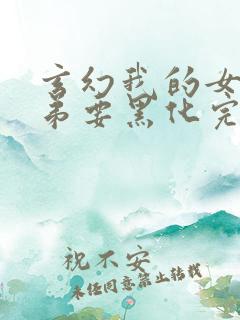 玄幻我的女
弟要黑化完
祝不安
未经同意禁止转载